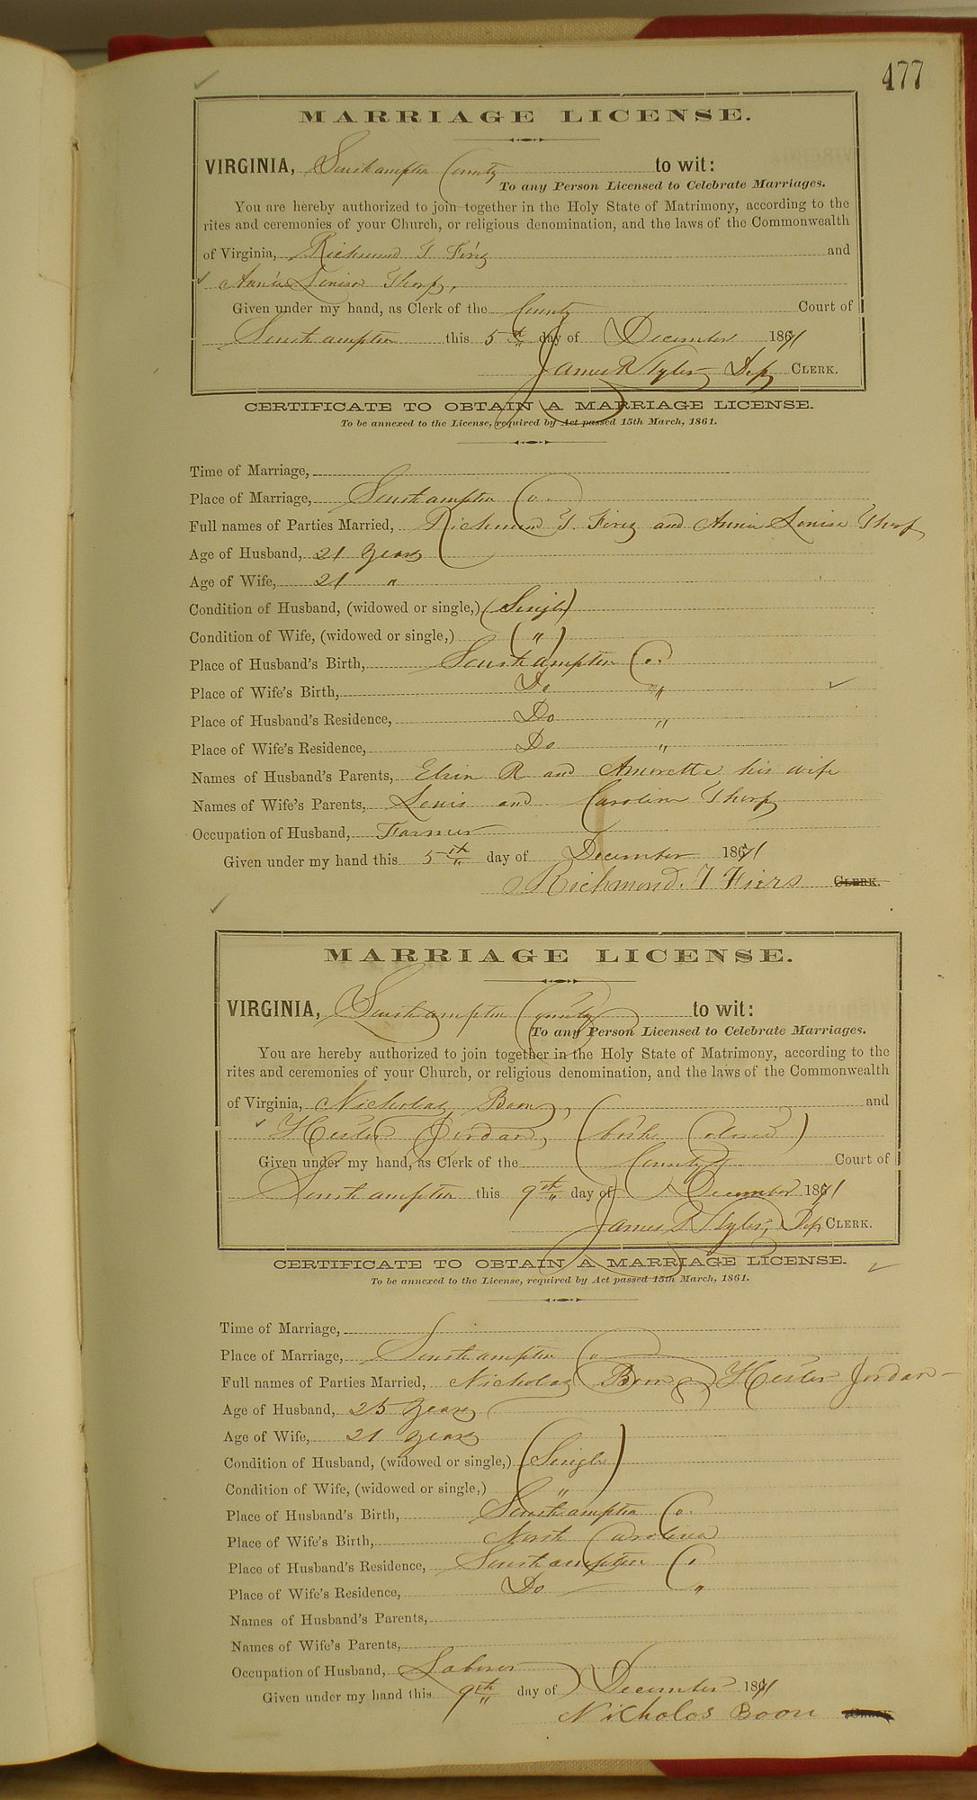 477
MARRIAGE LICENSE.
VIRGINIA, Southampton County to wit:
To any Person Licensed to Celebrate Marriages.
You are hereby authorized to join together in the Holy State of Matrimony, according to the
rites and ceremonies of your Church, or religious denomination, and the laws of the Commonwealth
of Virginia, Richmond T and
Annie Louisa Thorp,
Given under my hand, as Clerk of the County Court of
Southampton this 5th day of December 1871
James R Tyler Dep CLERK.
CERTIFICATE TO OBTAIN A MARRIAGE LICENSE.
To be annexed to the License, required by Act passed 15th March, 1861.
Time of Marriage,
Place of Marriage, Southampton Co.
Full names of Parties Married, Richmond T. and Annie Louisa Thorp
Age of Husband, 21 years
Age of Wife, 21 "
Condition of Husband, (widowed or single,) (Single)
Condition of Wife, (widowed or single,) ( " )
Place of Husband's Birth, Southampton Co.
Place of Wife's Birth, Do "
Place of Husband's Residence, Do "
Place of Wife's Residence, Do "
Names of Husband's Parents, R and his wife
Names of Wife's Parents, Lewis and Caroline Thorp
Occupation of Husband, Farmer
Given under my hand this 5th day of December 1871
Richmond. T Fiers CLERK.
MARRIAGE LICENSE.
VIRGINIA, Southampton County to wit:
To any Person Licensed to Celebrate Marriages.
You are hereby authorized to join together in the Holy State of Matrimony, according to the
rites and ceremonies of your Church, or religious denomination, and the laws of the Commonwealth
of Virginia, Nicholas Boon, and
Hester Jordan, (both Colored)
Given under my hand, as Clerk of the County Court of
Southampton this 9th day of December 1871
James R Tyler, Dep CLERK.
CERTIFICATE TO OBTAIN A MARRIAGE LICENSE.
To be annexed to the License, required by Act passed 15th March, 1861.
Time of Marriage,
Place of Marriage, Southampton Co
Full names of Parties Married, Nicholas Boon & Hester Jordan
Age of Husband, 25 years
Age of Wife, 21 years
Condition of Husband, (widowed or single,) (Single)
Condition of Wife, (widowed or single,) "
Place of Husband's Birth, Southampton Co.
Place of Wife's Birth, North Carolina
Place of Husband's Residence, Southampton Co
Place of Wife's Residence, Do "
Names of Husband's Parents,
Names of Wife's Parents,
Occupation of Husband, Laborer
Given under my hand this 9th day of December 1871
Nicholos Boon